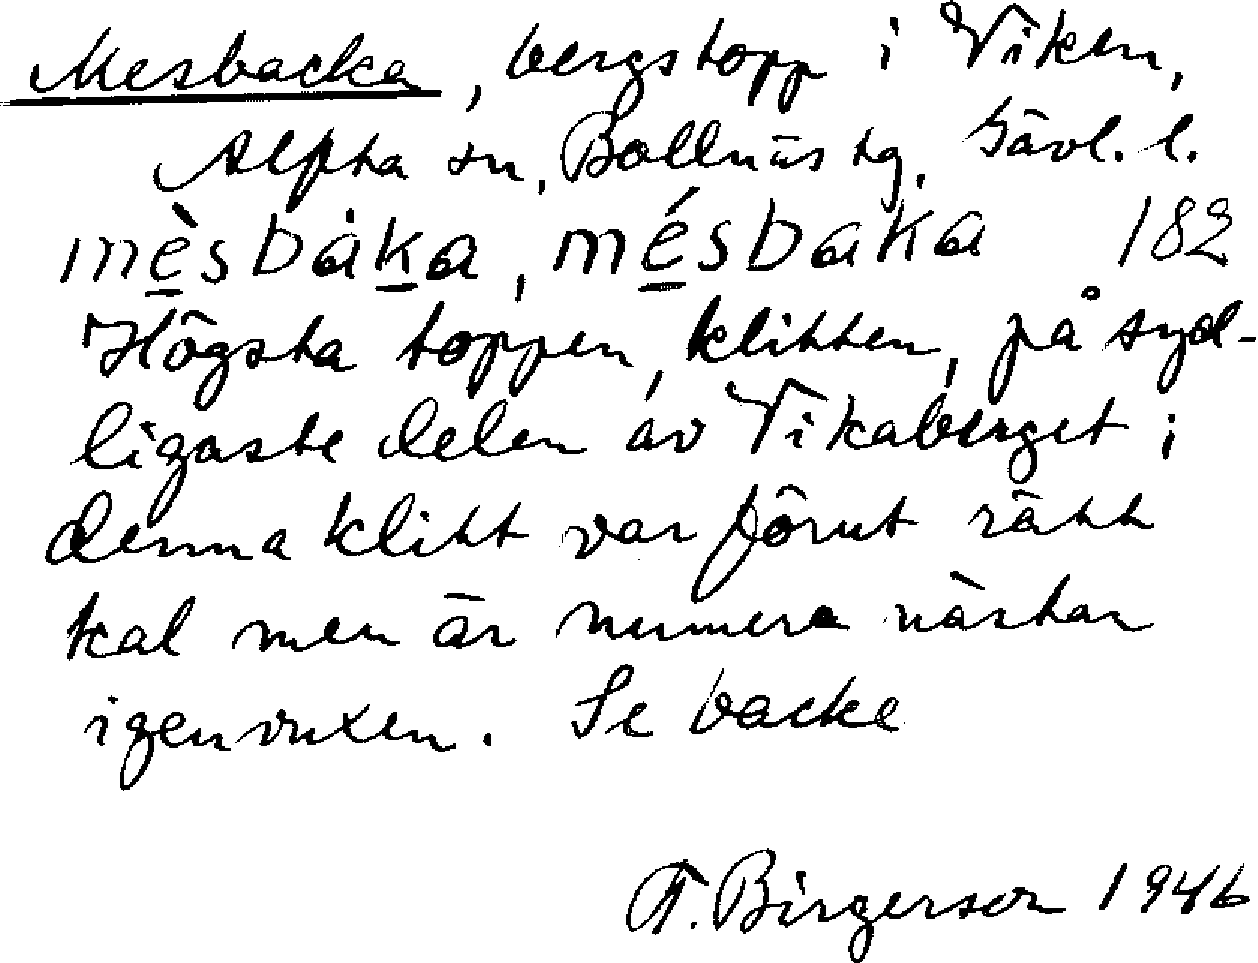 Mesbacka, bergstopp i Viken,
Alfta sn, Bollnäs tg, Gävl. l.
mèsbàka, mésbaka 182
Högsta toppen, klitten, på syd-
ligaste delen av Vikaberget i
denna klitt var förut rätt
kal men är numera nästan
igenvuxen. Se backe
F. Birgerson 1946